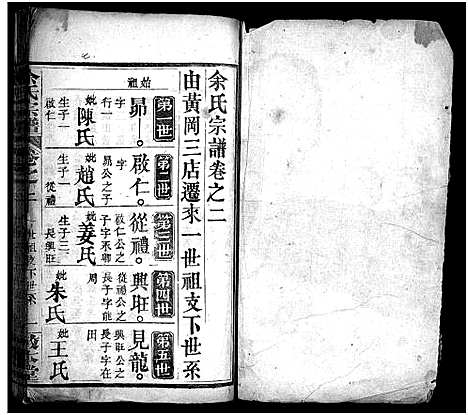 余氏宗譜卷之二
由黃岡三店遷來一世祖支下世系
始祖
第一世
昴
字
行一
妣陳氏
生子一
啟仁
第二世
啟仁
字
昴公之子
妣趙氏
生子一
從禮
第三世
從禮
啟仁公之
子字禾卿
妣姜氏
生子三
長興旺
第四世
興旺
從禮公之
長子字在
周
妣朱氏
第五世
見龍
興旺公之
長子字在
田
妣王氏
余氏宗譜